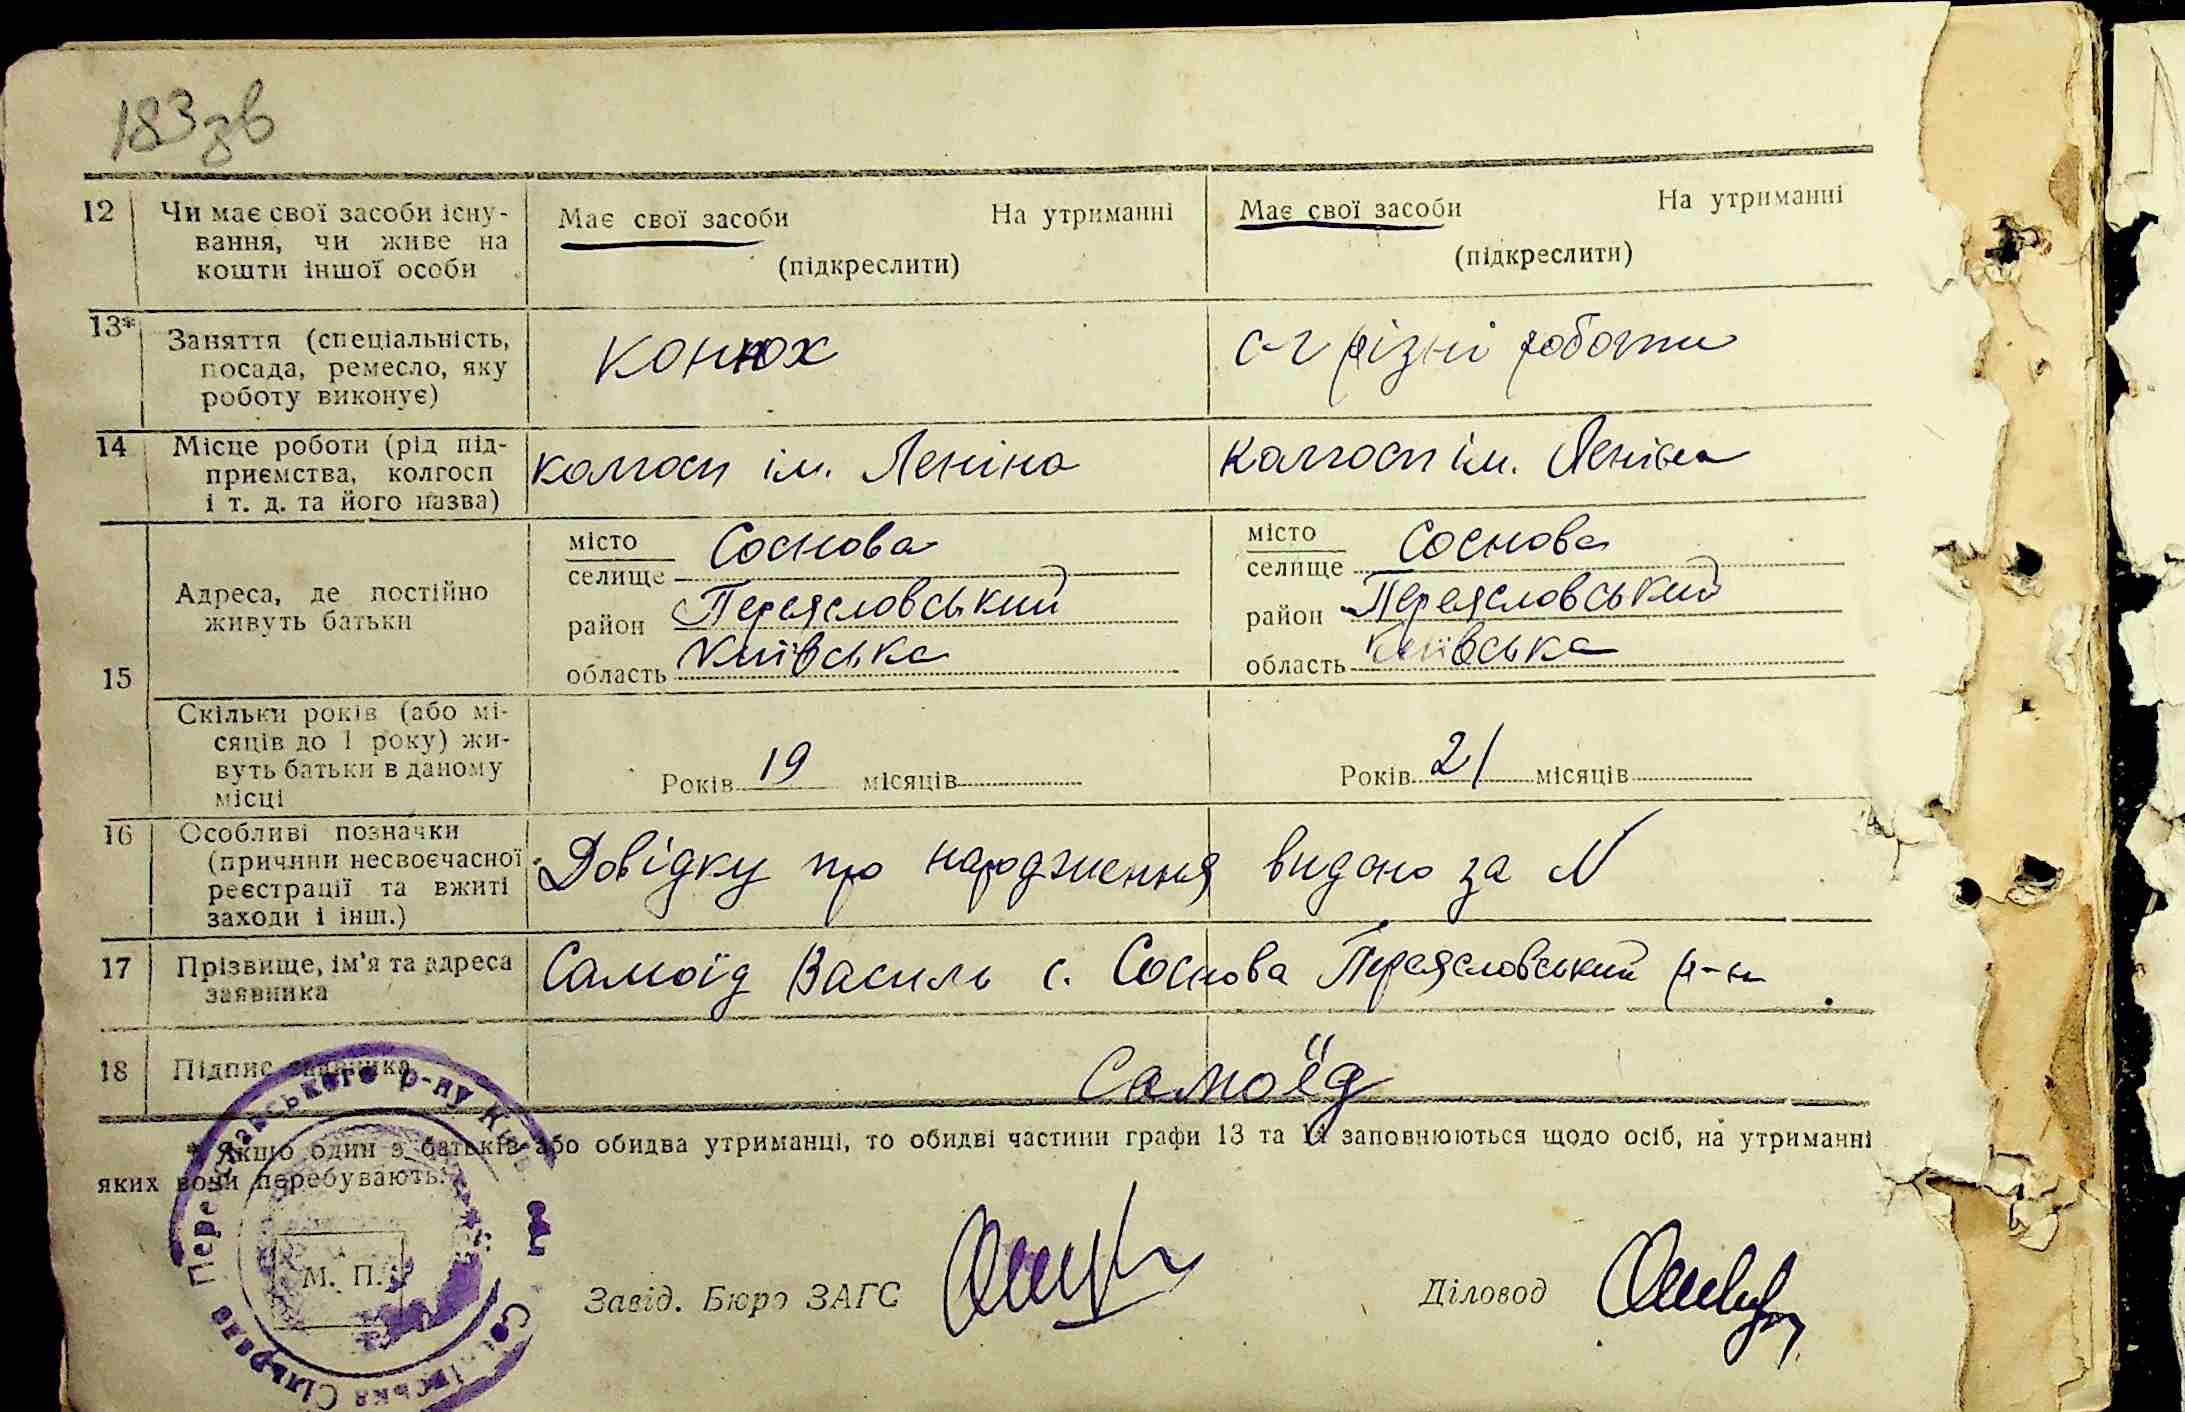 183зв
12 Чи має свої засоби існу- Має свої засоби На утриманні Має свої засоби На утриманні
вання, чи живе на
кошти іншої особи (підкреслити) (підкреслити)
13* Заняття (спеціальність, конюх с-г різні роботи
посада, ремесло, яку
роботу виконує)
14 Місце роботи (рід під- колгосп ім. Леніна колгосп ім. Леніна
приємства, колгосп
і т. д. та його назва)
місто Соснова місто Соснова
селище селище
Адреса, де постійно район Переясловський район Переясловський
живуть батьки
область Київська область Київська
15
Скільки років (або мі-
сяців до 1 року) жи-
вуть батьки в даному Років 19 місяців Років 21 місяців
місці
16 Особливі позначки
(причини несвоєчасної Довідку про народження видано за N
реєстрації та вжиті
заходи і інш.)
17 Прізвище, ім'я та адреса Самоїд Василь с. Соснова Переясловський р-н
заявника
18 Підпис заявника Самоїд
* Якщо один з батьків або обидва утриманці, то обидві частини графи 13 та 14 заповнюються щодо осіб, на утриманні
яких вони перебувають.
М. П. Завід. Бюро ЗАГС Діловод
Соснівська Сільрада Переяславського р-ну